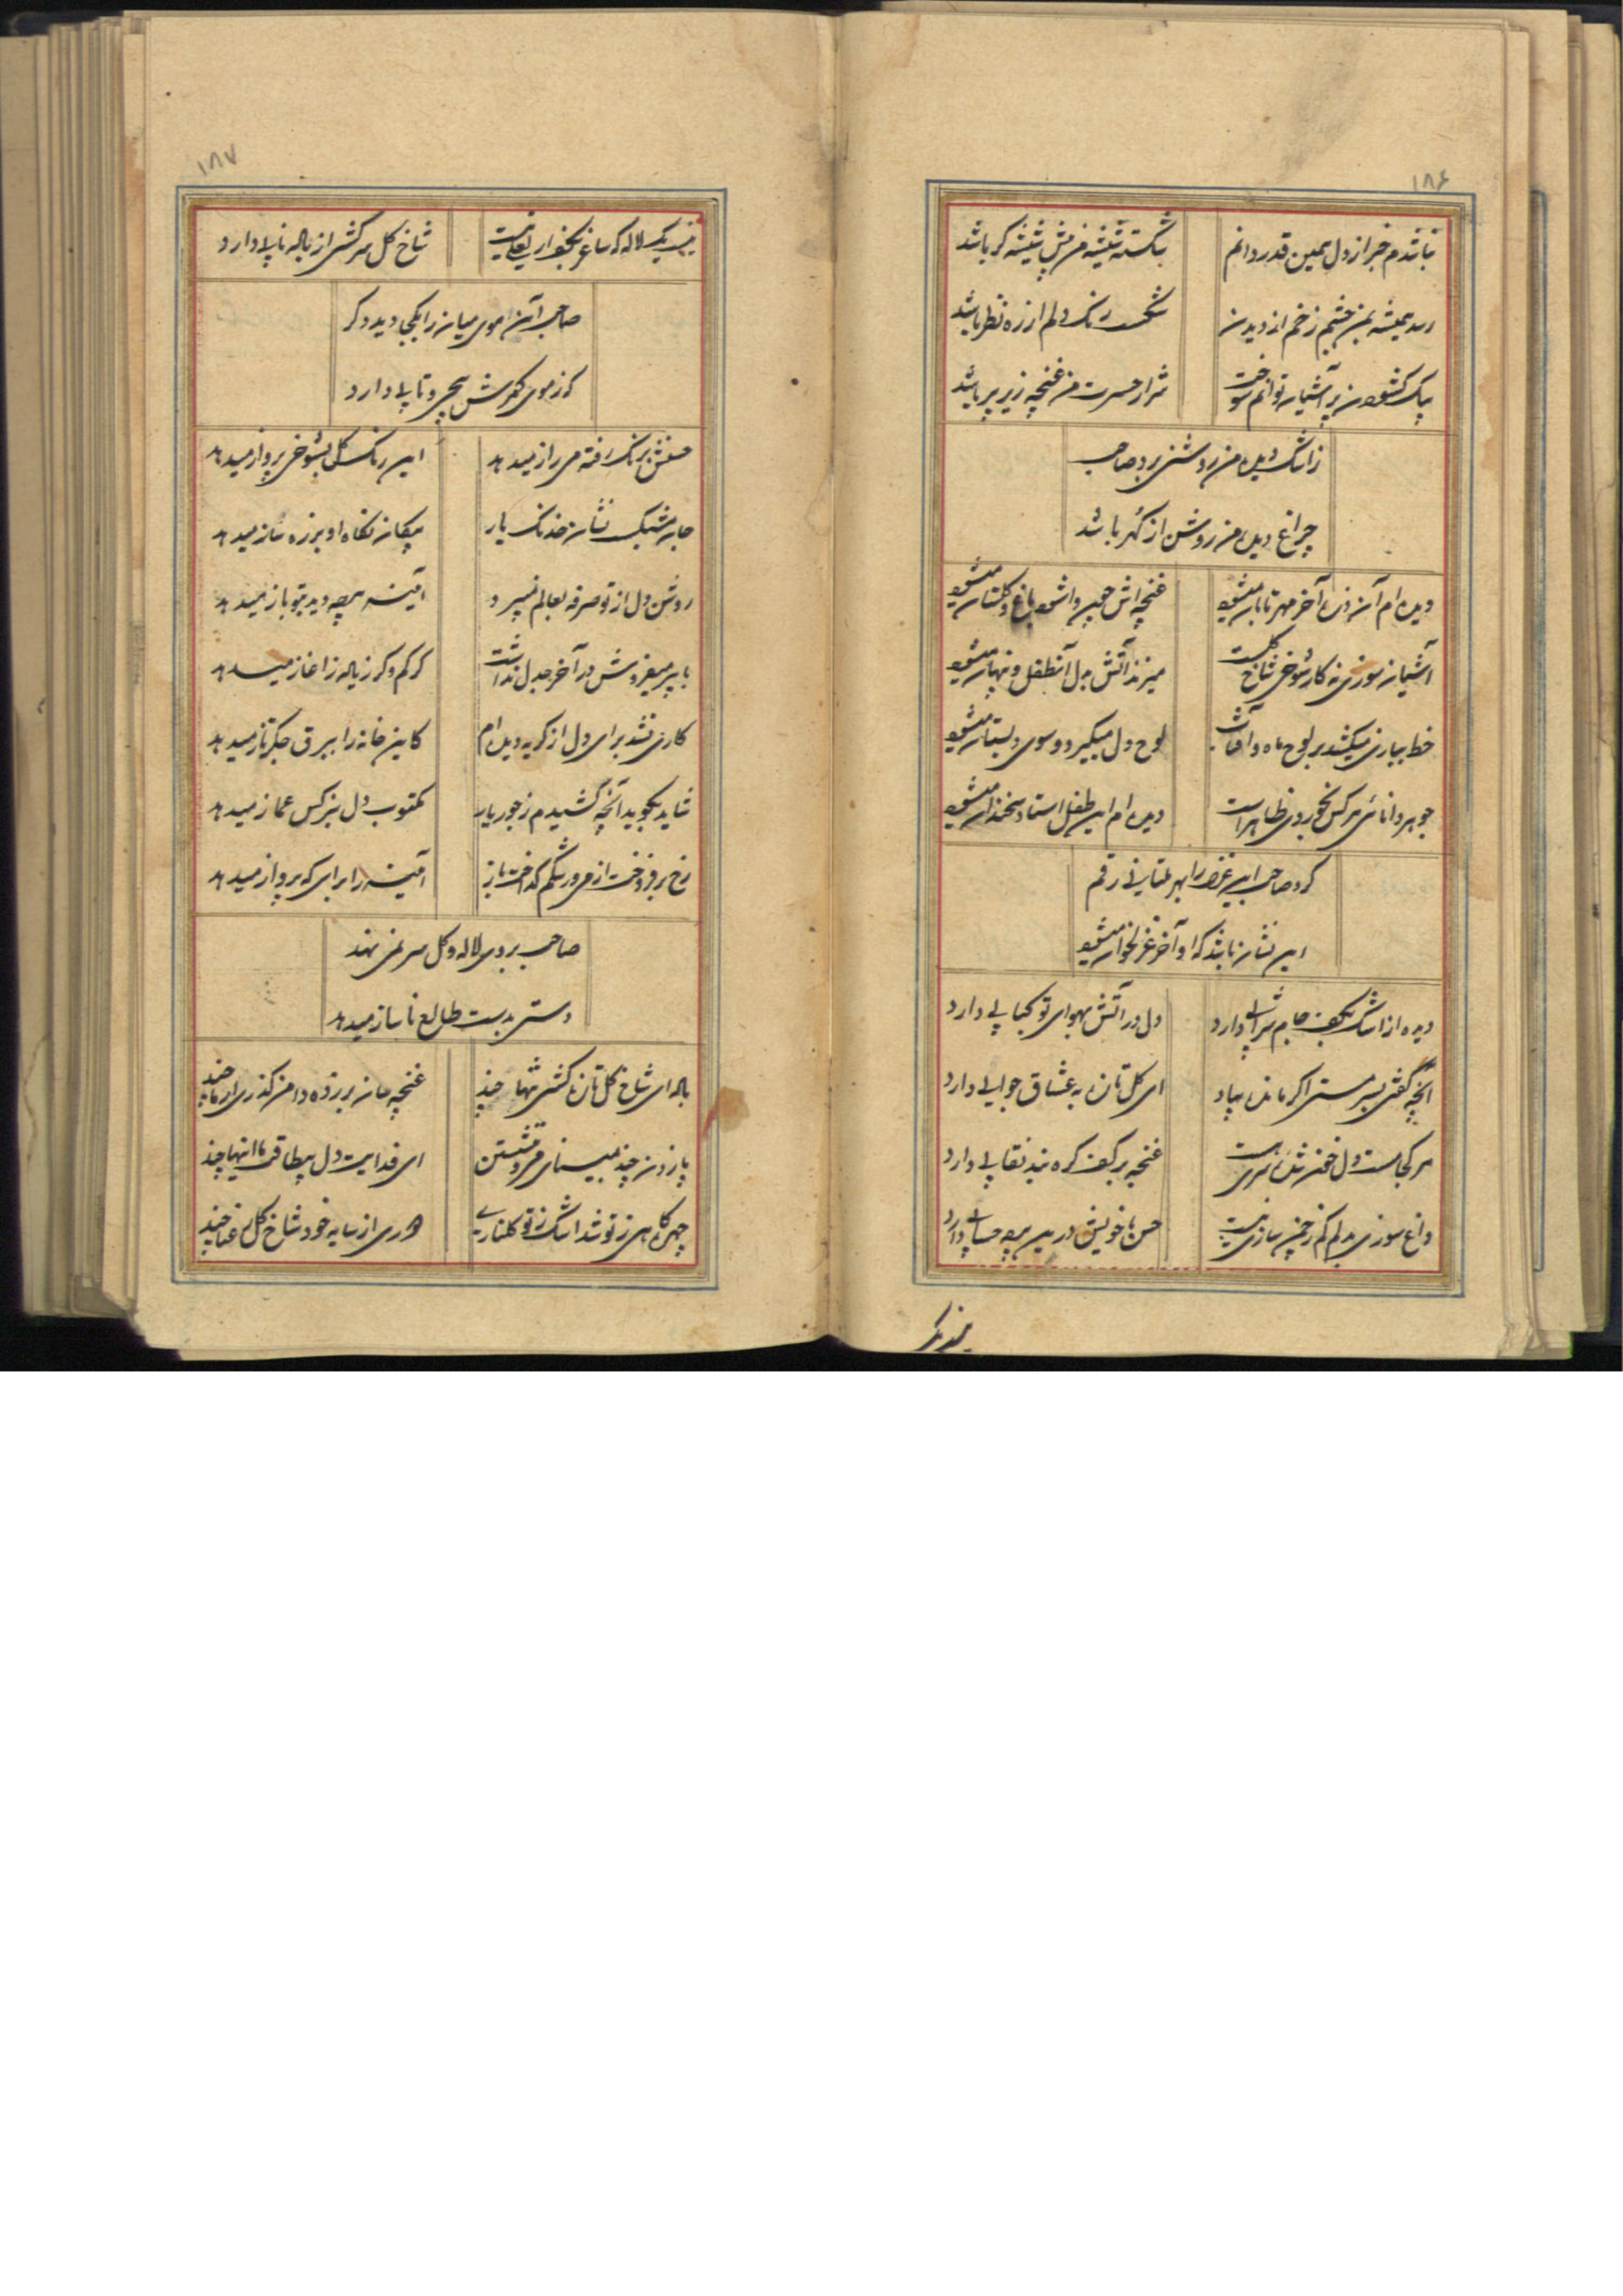 ۱۸۶
نباشدم خبر از دل همین قدر دانم
شکسته شیشه من پیش شیشه گر باشد
رسد همیشه بمن چشم زخم از دیدن
شکست رنگ دلم از ره نظر باشد
بیک گشودن پر آشیانه توانم سوخت
شرار حسرت من غنچه زیر پر باشد
ز اشک دیده من روشنی برد صاحب
چراغ دیده من روشن از گهر باشد
دیده ام آن ذره آخر مهر تابان میشود
غنچه اش چون وا شود باغ و گلستان میشود
آشیان سوزی نه کار شوخی شاخ گلست
میزند آتش بدل آنطفل و پنهان میشود
خط بیاری میکشد بر لوح ماه و آفتاب
لوح دل میگیرد و سوی دبستان میشود
جوهر دانائی هر کس نخوردی ظاهر است
دیده ام این طفل استاد سخندان میشود
کرد صاحب این غزل را بهر رقم
این نشان باشد که او آخر غزلخوان میشود
دیده از اشک بکف جام شرابی دارد
دل در آتش بهوای تو کبابی دارد
آنچه گفتی بسر مستی اگر مانده بیاد
ای گل تازه به عشاق جوابی دارد
هر کجا هست دل
غنچه بر کف گره بند نقابی دارد
داغ سوزی بدلم کم ز چمن سازی نیست
حسن با خویش درین پرده حسابی دارد
نیست یک
۱۸۷
نیست یک لاله که ساغر بکف از
شاخ گل سرکشی از باله نابی دارد
صاحب آن موی میان را بکجا دید دگر
که ز موی کمرش پیچ و تابی دارد
حسنش برنگ رفته می راز میدهد
این رنگ گل بشوخی پرواز میدهد
جان مشبک نشان خدنک یار
پیکان نگاه او بزره ساز میدهد
روشن دل از تو صرفه بعالم نمیبرد
آئینه هر چه دید بتو باز میدهد
با پیر میفروش در آخر جدل نداشت
گر کم و گر زیاده ز آغاز میدهد
کاری نشد برای دل از گریه دیده ام
کاین خانه را ببرق جگرتاز میدهد
شاید بگوید آنچه کشیدم ز جور یار
مکتوب دل بنرگس غماز میدهد
رخ برفروخت از می و رشکم گداخت باز
آئینه را برای که پرواز میدهد
صاحب بروی لاله و گل سر نمی نهد
دستی بدست طالع ناساز میدهد
باله ای شاخ گل تازه کشی تنها چند
غنچه سان بر زده دامن گذری از ما چند
پا زدن چند بمینای فروشستن
ای فدایت دل بیطاقت ما اینها چند
چهره کاهی ز تو شد اشک ز تو گلناری
دوری از سایه خود شاخ گل رعنا چند